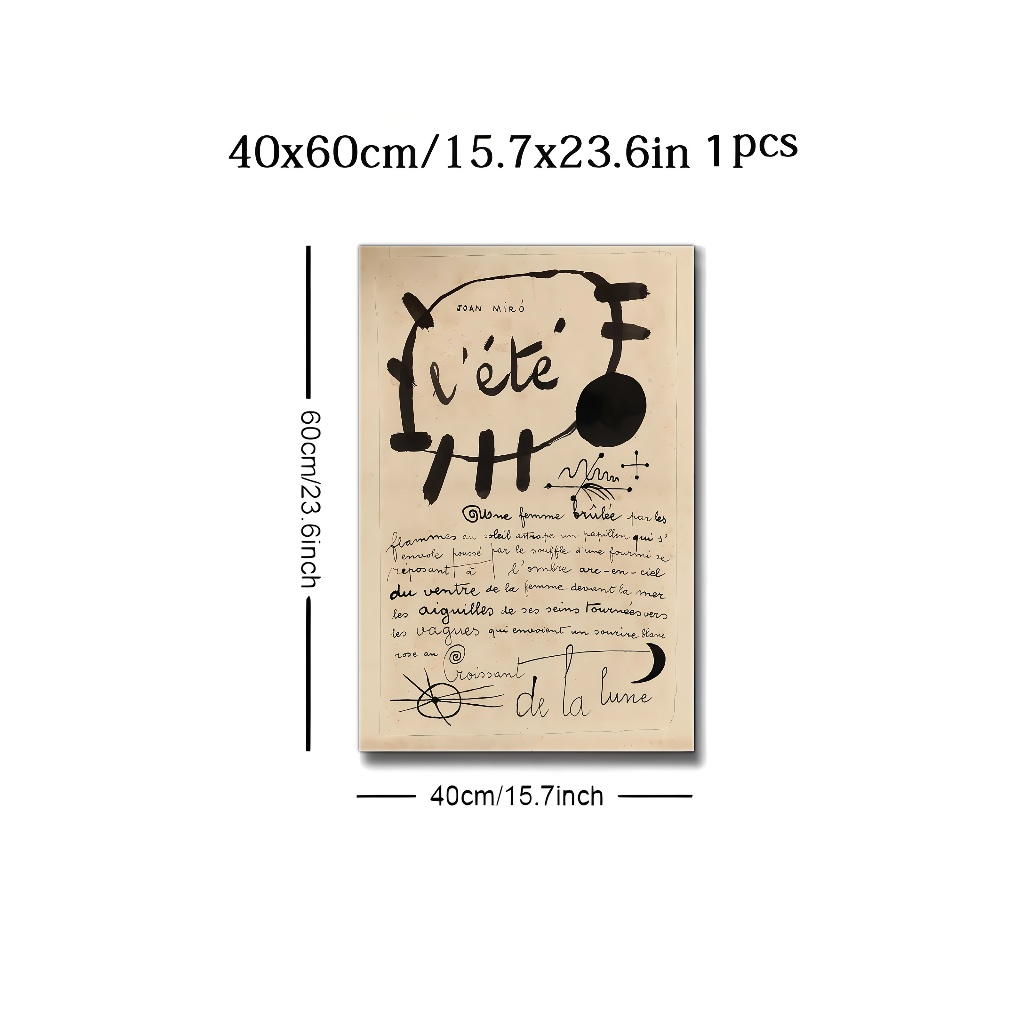 40x60cm/15.7x23.6in 1pcs
JOAN MIRÓ
l'été
Une femme brûlée par les
flammes au soleil attrape un papillon qui s'
envole poussé par le souffle d'une fourmi se
réposant à l'ombre arc-en-ciel
du ventre de la femme devant la mer
les aiguilles de ses seins tournées vers
les vagues qui envoient un sourire blanc
rose au
Croissant
de la lune
60cm/23.6inch
40cm/15.7inch